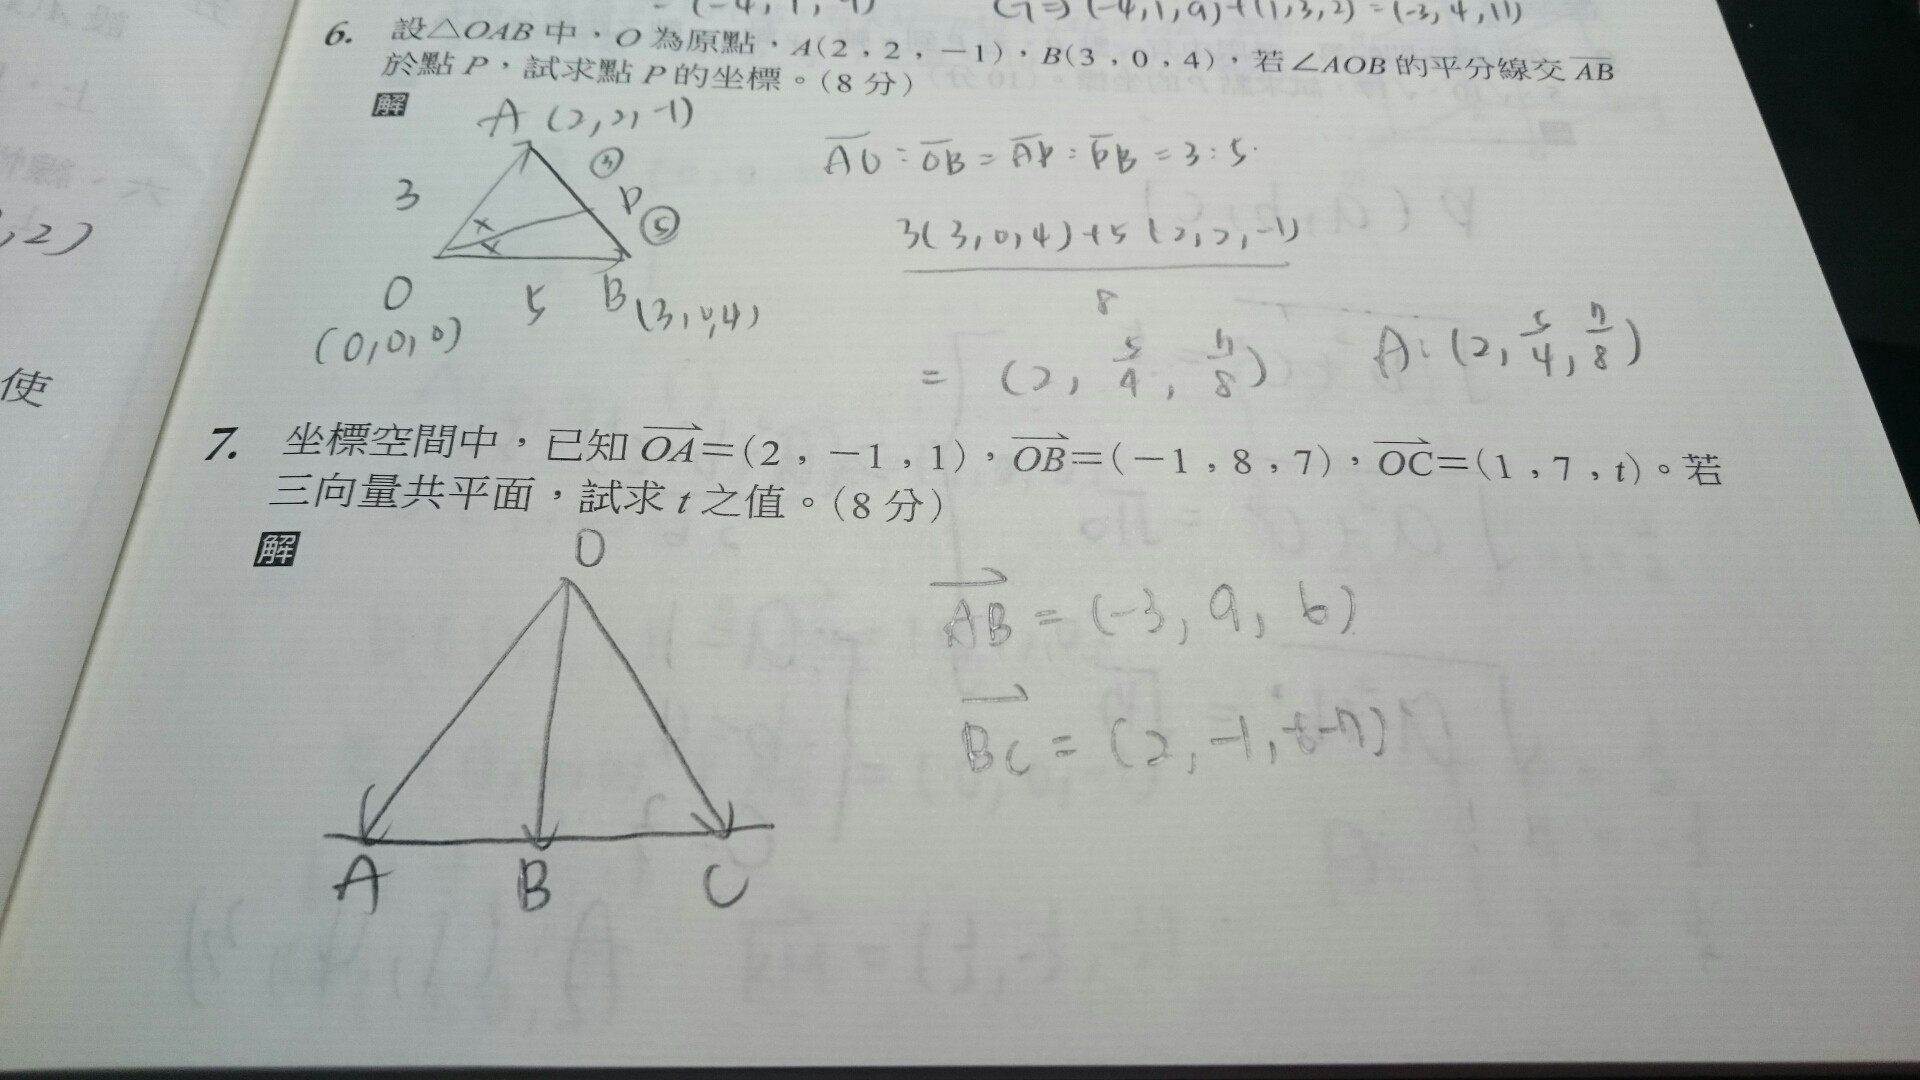 = (-4, 1, 9) (7⇒) (-4,1,9)+(1,3,2) = (-3,4,11)
6. 設△OAB 中，O 為原點，A(2，2，－1)，B(3，0，4)，若∠AOB 的平分線交 AB
於點 P，試求點 P 的坐標。(8 分)
解
A (2,2,-1)
AO : OB = AP : PB = 3 : 5
3
③
P
⑤
3(3,0,4)+5(2,2,-1)
8
O
5
B (3,0,4)
(0,0,0)
= (2, 5/4, 7/8) A: (2, 5/4, 7/8)
使
,2)
7. 坐標空間中，已知 OA＝(2，－1，1)，OB＝(－1，8，7)，OC＝(1，7，t)。若
三向量共平面，試求 t 之值。(8 分)
解
O
AB = (-3, 9, 6)
BC = (2, -1, t-7)
A B C